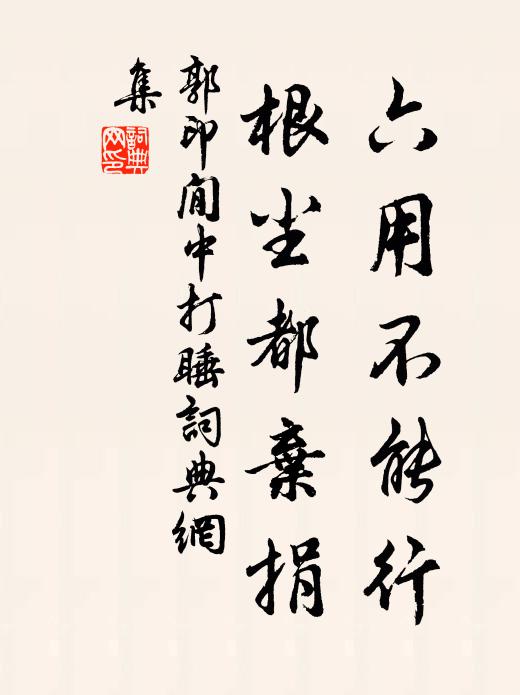 六用不能行
根尘都棄捐
郭印閒中打睡詞典網
集
詞典
网印